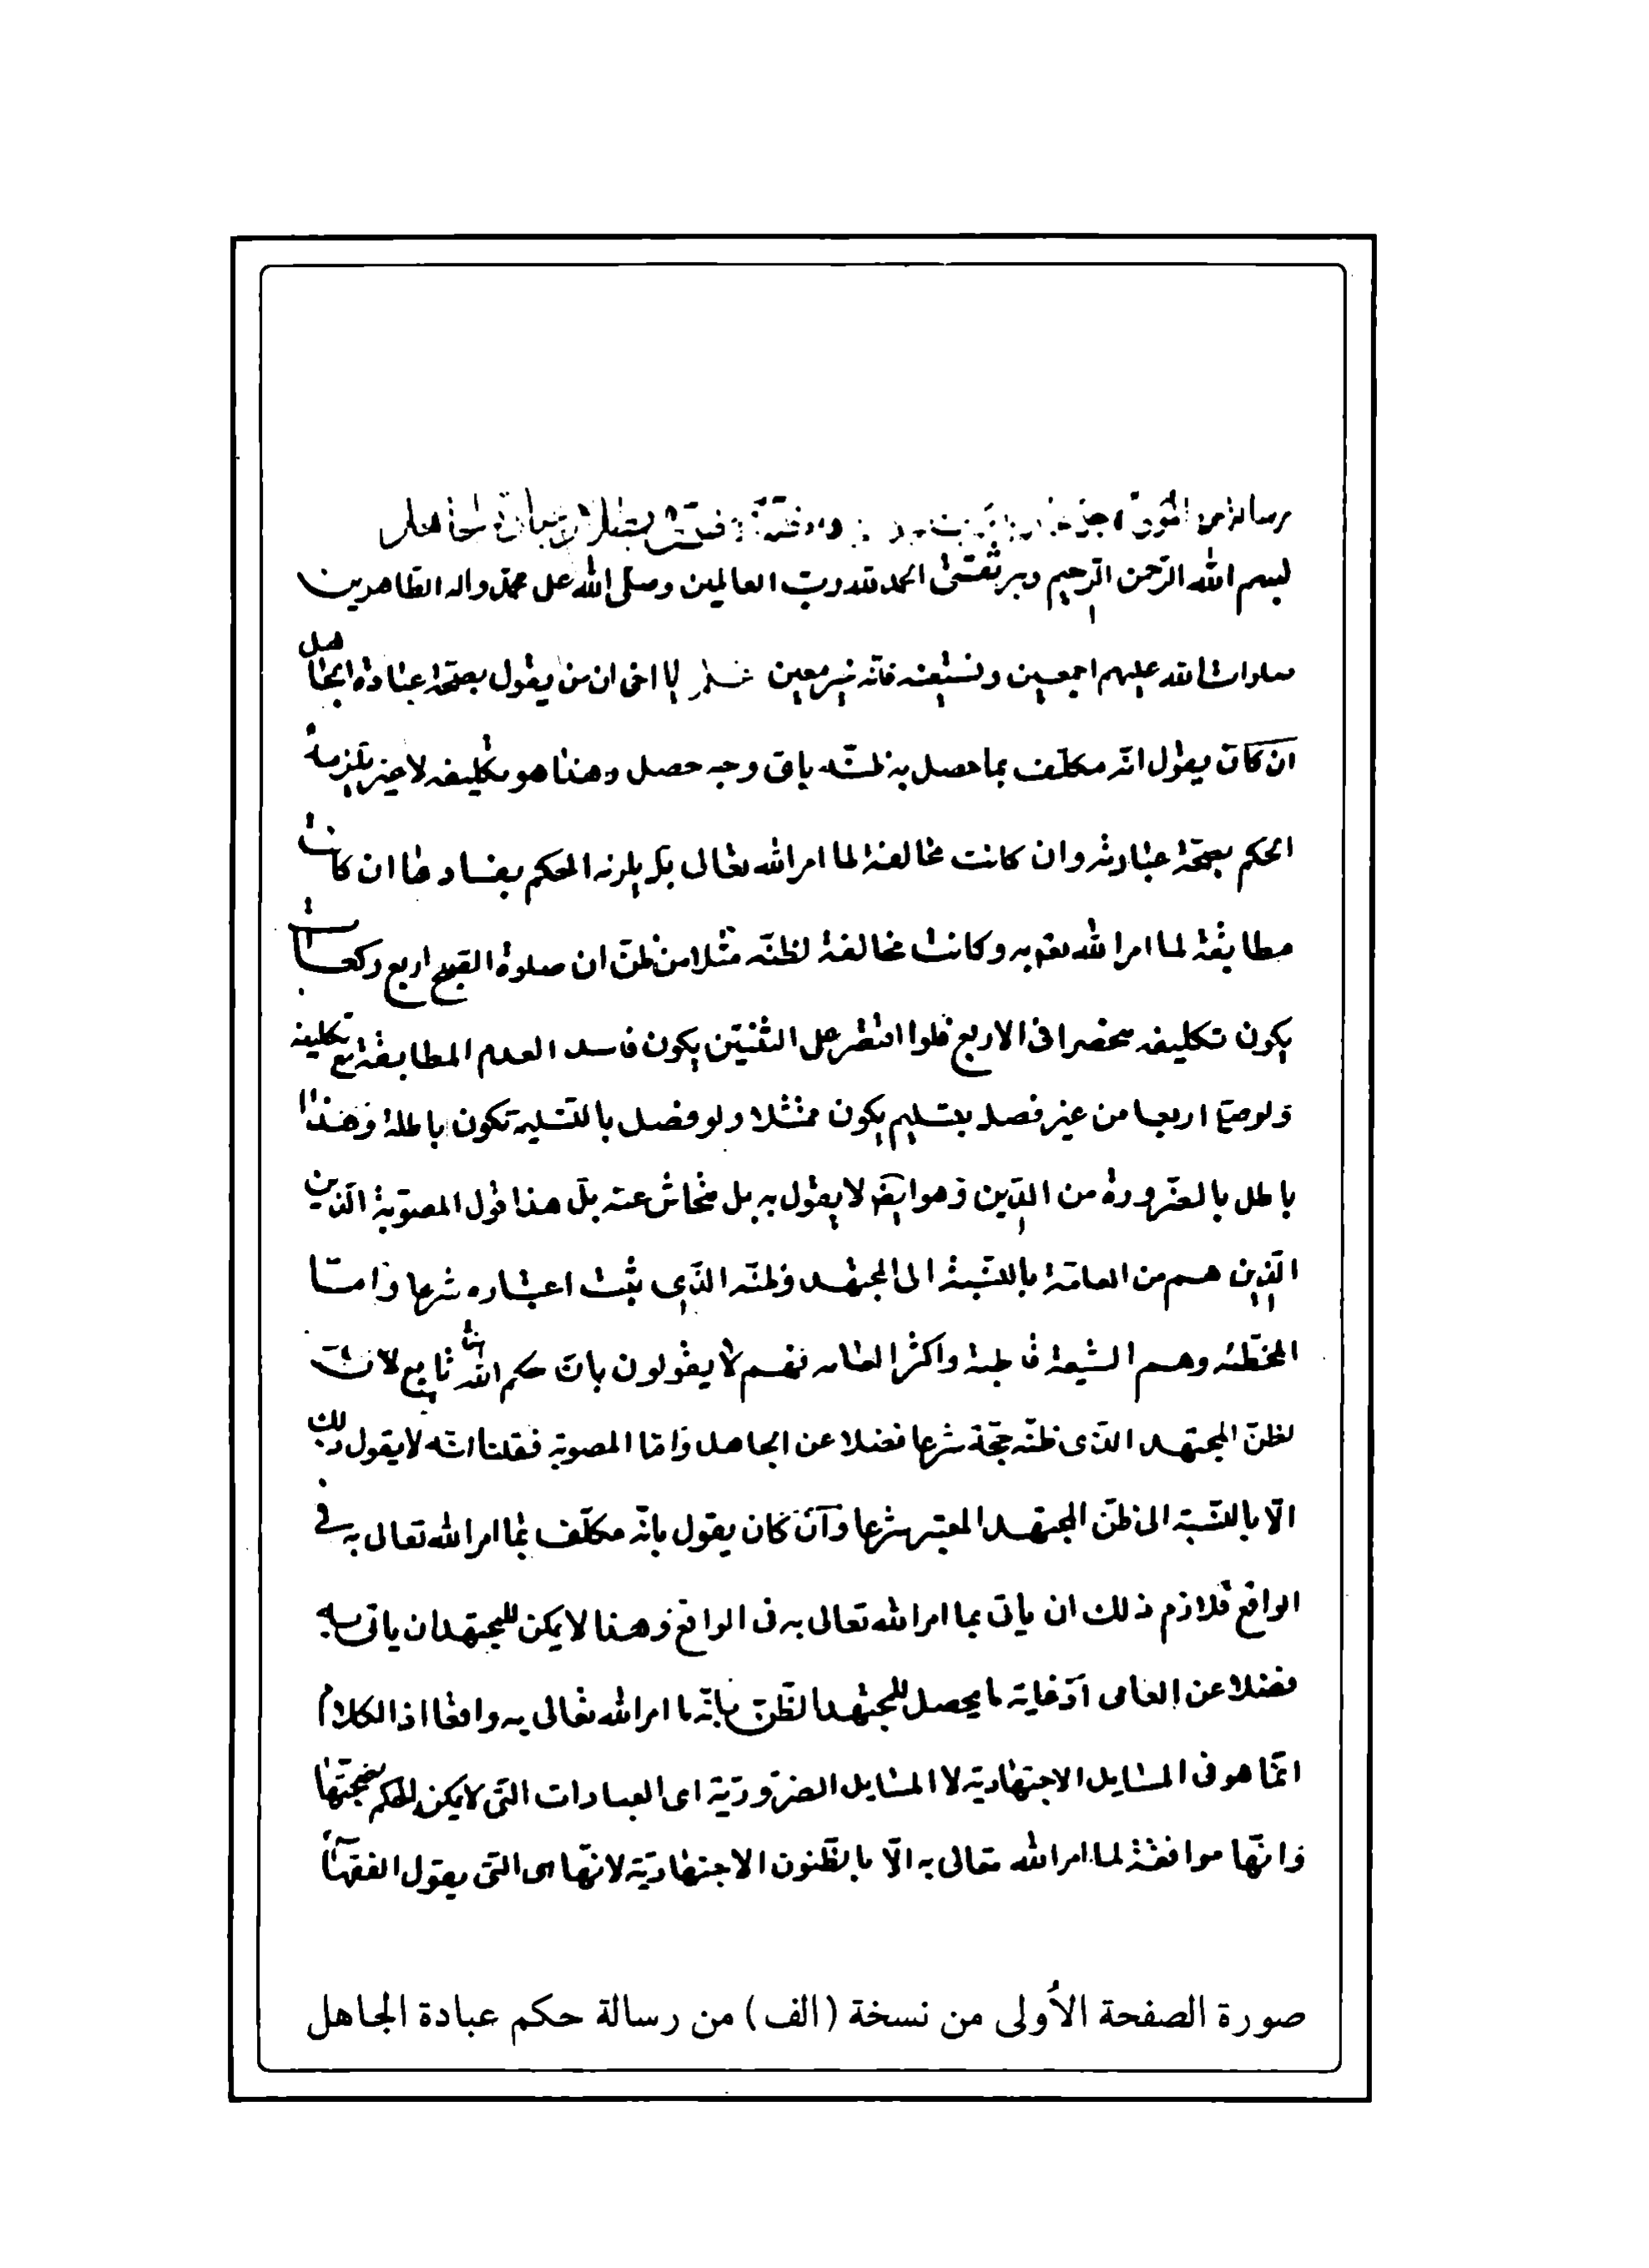 رسالة من
بسم الله الرّحمن الرّحيم وبه ثقتى الحمد لله ربّ العالمين وصلى الله على محمّد واله الطّاهرين
صلوات الله عليهم اجمعين ونستعينه فانّه خير معين يا اخى ان من يقول بصحّة عبادة الجاهل
ان كان يقول انّه مكلّف بما حصل به ظنّه باى وجه حصل وهذا هو تكليفه لا غير يلزمه
الحكم بصحّة عبادته وان كانت مخالفة لما امر الله تعالى بل يلزمه الحكم بفسادها ان كانت
مطابقة لما امر الله تعم به وكانت مخالفة لظنّه مثلا من ظنّ ان صلوة الصّبح اربع ركعات
يكون تكليفه منحصرا فى الاربع فلو اقتصر على الثنتين يكون فاسد العدم المطابقة مع تكليفه
ولو صلى اربعا من غير فصل بتسليم يكون ممتثلا ولو فصل بالتسليم تكون باطلة وهذا
باطل بالضّرورة من الدّين وهو ايضا لا يقول به بل متحاش عنه بل هذا قول المصوّبة الّذين
الّذين هم من العامّة بالنّسبة الى المجتهد وظنّه الذّى يثبت اعتباره شرعا وامّا
المخطّئه وهم الشيعة قاطبة واكثر العامه فهم لا يقولون بانّ حكم الله تعالى تابع
لظنّ المجتهد الذّى ظنّه حجّة شرعا فضلا عن الجاهل وامّا المصوبة فقلنا انّه لا يقول ذلك
الّا بالنّسبة الى ظنّ المجتهد المعتبر شرعا وان كان يقول بانّه مكلّف بما امر الله تعالى به فى
الواقع فلازم ذلك ان ياتى بما امر الله تعالى به فى الواقع وهذا لا يمكن للمجتهد ان ياتى به
فضلا عن العامى اذ غاية ما يحصل للمجتهد الظّن بانّه ما امر الله تعالى به واقعا اذ الكلام
انمّا هو فى المسايل الاجتهاديّة لا المسايل الضّروريّة اى العبادات التى لا يمكن الحكم بصحّتها
وانّها موافقة لما امر الله تعالى به الّا بالظّنون الاجتهاديّة لانّها هى التى يقول الفقهاء
صورة الصفحة الأولى من نسخة (الف) من رسالة حكم عبادة الجاهل